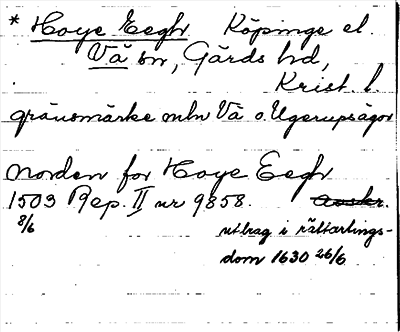 * Hoye Eegh Köpinge el.
Vä sn, Gärds hd,
Krist. l.
gränsmärke mln Vä o. Ugerupsägor
norden for Hoye Eegh
1503 Rep. II nr 9858. Avskr.
8/6 utdrag i rättartings-
dom 1630 26/6